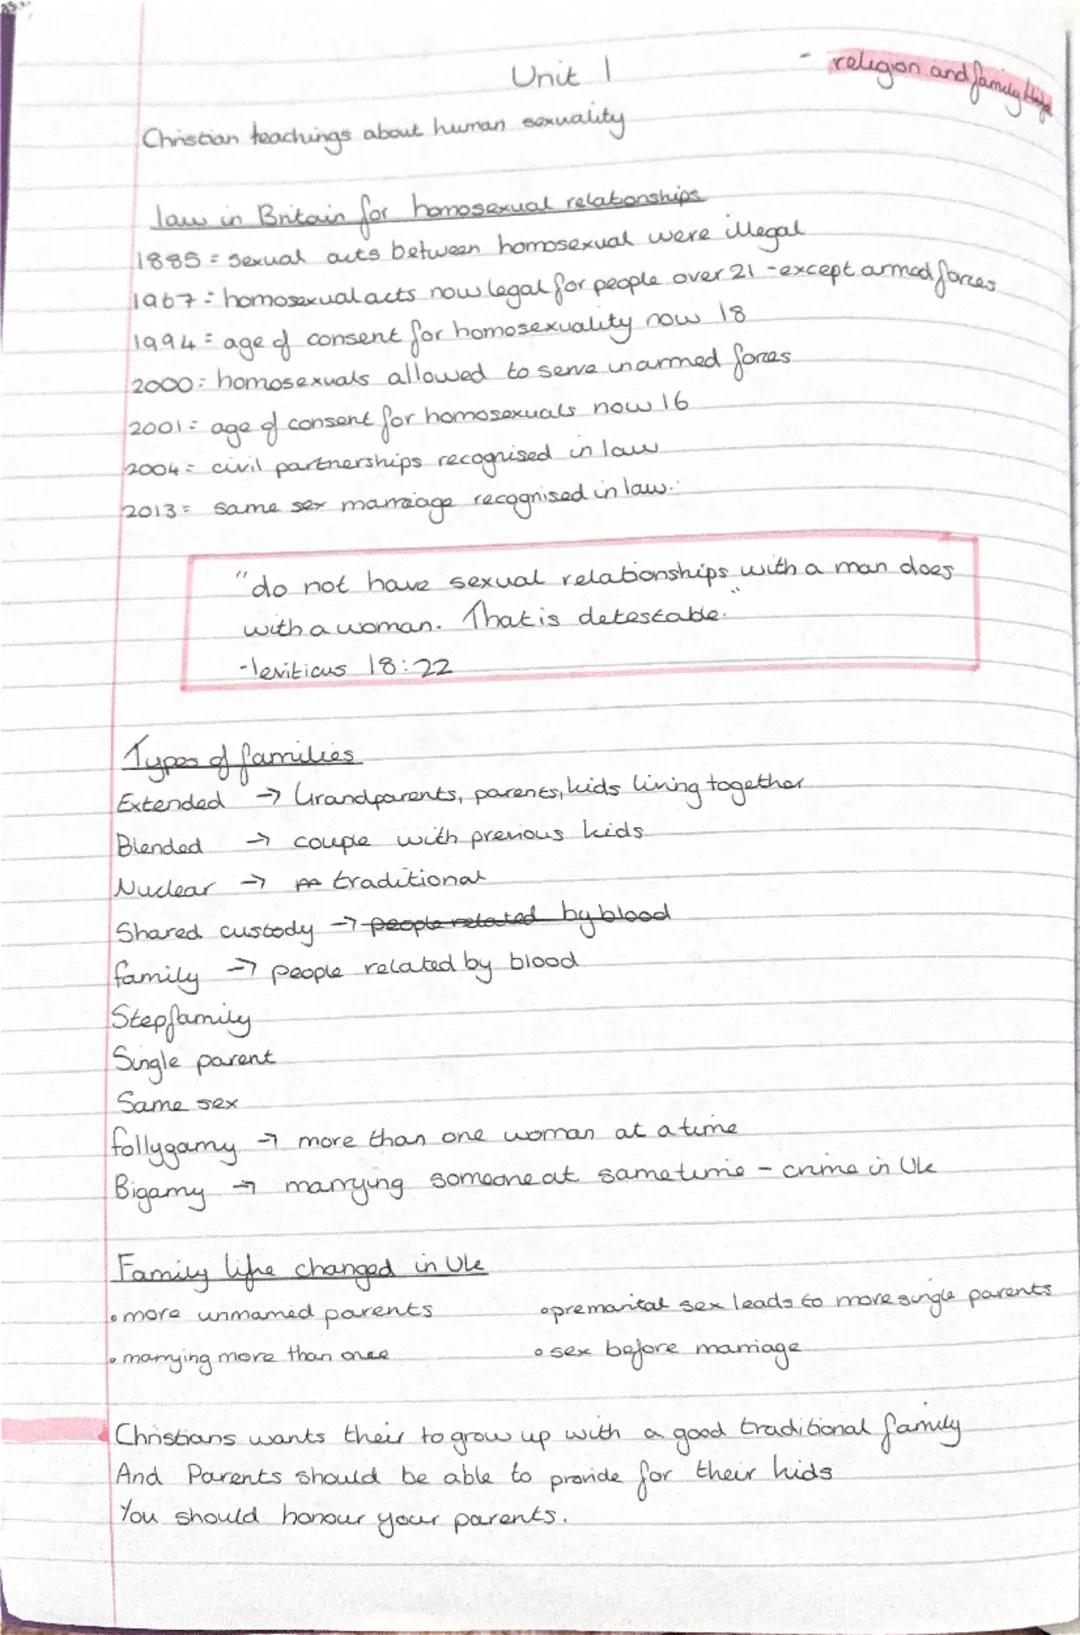 Unit 1
- religion and family
Christian teachings about human sexuality
law in Britain for homosexual relationships
1885 = sexual acts between homosexual were illegal
1967 = homosexual acts now legal for people over 21 - except armed forces
1994 = age of consent for homosexuality now 18
2000 = homosexuals allowed to serve in armed forces
2001 = age of consent for homosexuals now 16
2004 = civil partnerships recognised in law
2013 = same sex marriage recognised in law.
"do not have sexual relationships with a man does
with a woman. That is detestable."
-leviticus 18:22
Types of families
Extended → Grandparents, parents, kids living together
Blended → couple with previous kids
Nuclear → traditional
Shared custody → people related by blood
family → people related by blood
Stepfamily
Single parent
Same sex
Pollygamy → more than one woman at a time
Bigamy → marrying someone at same time - crime in Uk
Family life changed in Uk
• more unmarried parents
• premarital sex leads to more single parents
• marrying more than once
• sex before marriage
Christians wants their to grow up with a good traditional family
And Parents should be able to provide for their kids
You should honour your parents.